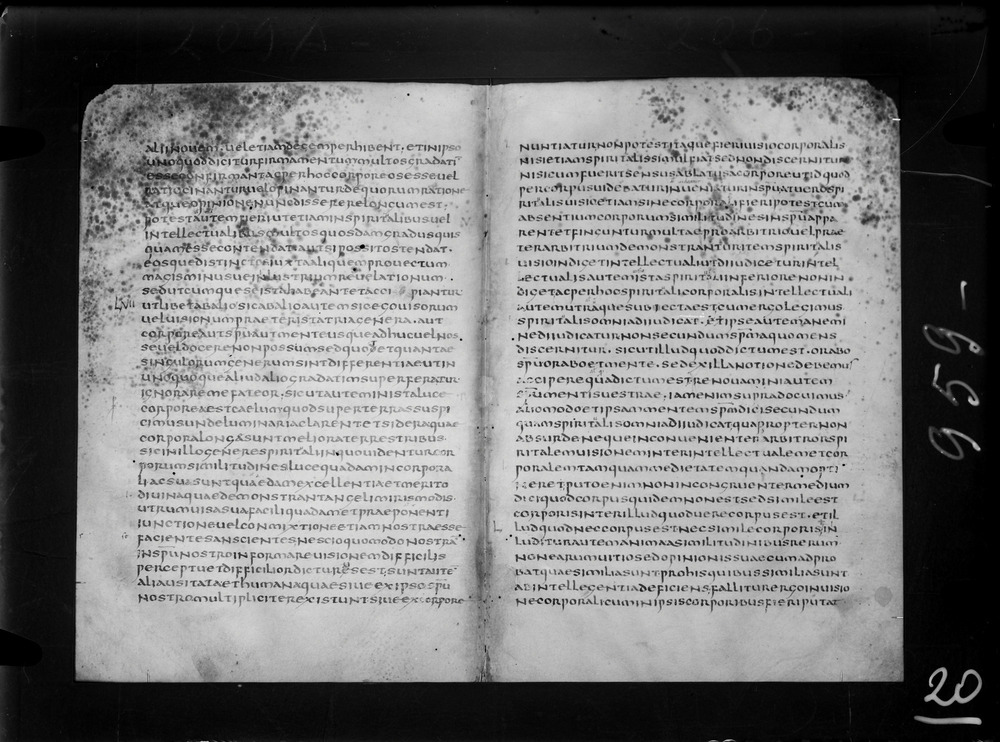 aliinouem · uel etiam decem perhibent · et in ipso
uno quod dicitur firmamentum multos gradati
esse confirmant ac per hoc corporeos esse uel
ratiocinantur uel opinantur de quorum ratione
atque opinione nunc disserere longum est ·
potest autem fieri ut etiam in spiritalibus uel
intellectualibus multos quosdam gradus quis
quam esse contendat aut si possit ostendat ·
eosque distinctos iuxta aliquem prouectum
magis minusue inlustrium reuelationum ·
sed utcumque se ista habeant et acci piantur
ut libet ab aliis sic ab alio autem sic ego uisorum
uel uisionum praeter ista tria genera · aut
corpore aut spu aut mente usque adhuc uel nos
se uel docere non possum sed quot et quantae
singulorum generum sint differentiae ut in
unoquoque aliud alio gradatim superferatur
ignorare me fateor · sicut autem in ista luce
corporea est caelum quod super terra suspi
cimus unde luminaria clarent et sidera quae
corporalongasunt meliora terrestribus ·
sic in illo genere spiritali in quo uidentur cor
porum similitudines luce quadam incorpora
liac sua sunt quaedam excellentia et merito
diuina quae demonstrant angeli miris modis ·
utrum uisa sua facili quadam et praepotenti
iunctione uel conmixtione etiam nostra esse
facientes an scientes nescio quo modo nostrā
in spu nostro informare uisionem difficilis
perceptu et difficilior dictu res est · sunt aute
alia usitata et humana quae siue ex ipso spu
nostro multipliciter existunt siue ex corpore
LVII
nuntiatur non potest itaque fieri uisio corporalis
nisi etiam spiritalis simul fiat sed non discernitur
nisi cum fuerit sensus ablatus a corpore ut id quod
per corpus uidebatur inueniatur in spu at uero spi
ritalis uisio etiam sine corporali fieri potest cum
absentium corporum similitudines in spu appa
rent et finguntur multae pro arbitrio uel prae
ter arbitrium demonstrantur item spiritalis
uisio indicet intellectuali ut diiudicetur intel
lectualis autem ista spiritali inferiore non in
diget ac per hoc spiritali corporalis intellectuali
autem utraque subiecta est cum ergo legimus
spiritalis omnia diiudicat · et ipse autem a nemi
ne diiudicatur non secundum spm a quo mens
discernitur · sicut illud quod dictum est · orabo
spu orabo et mente · sed ex illa notione debemus
accipere qua dictum est renouamini autem
spu mentis uestrae · iam enim supra docuimus
alio modo et ipsam mentem spm dici secundum
quam spiritalis omnia diiudicat quapropter non
absurde neque inconuenienter arbitror spi
ritalem uisionem inter intellectualem et cor
poralem tamquam medietatem quandam opti
nere · puto enim non incongruenter medium
dici quod corpus quidem non est sed simile est
corporis inter illud quod uere corpus est · et il
lud quod nec corpus est nec simile corporis in
luditur autem anima a similitudinibus rerum
non earum uitio sed opinionis suae cum adpro
bat quae similia sunt pro his quibus similia sunt
ab intellegentia deficiens fallitur ergo in uisio
ne corporali cum in ipsis corporibus fieri putat
959-
120